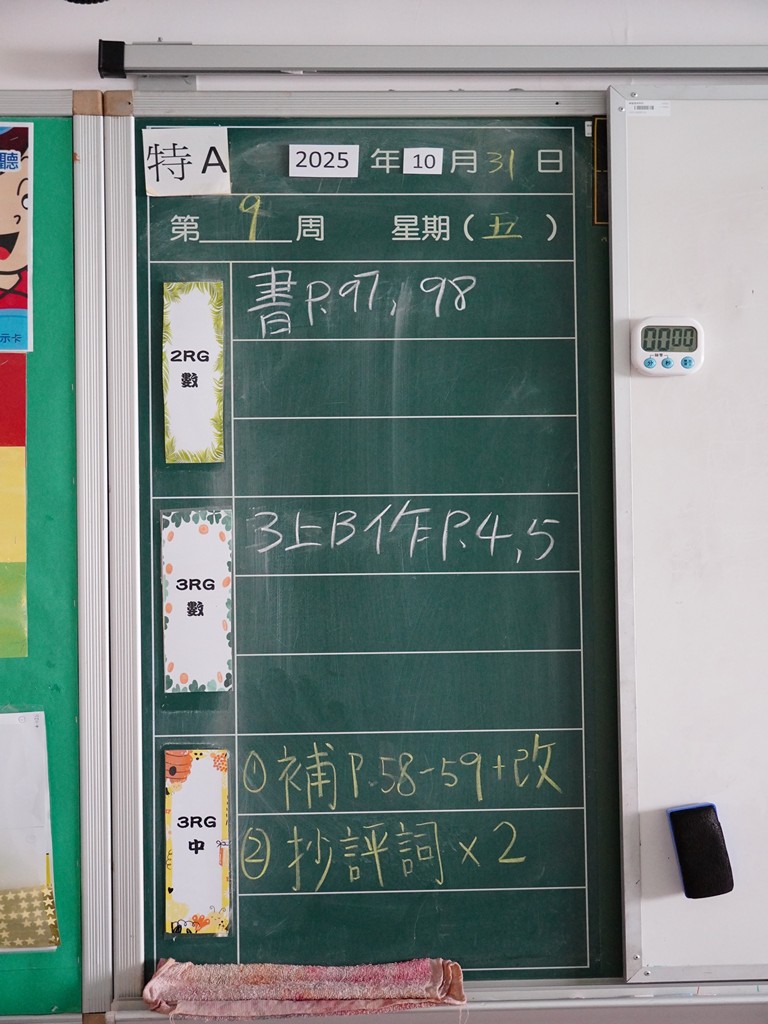 聽
特A 2025 年 10 月 31 日
第 9 周 星期（五）
示卡
2RG
數
書P.97, 98
00 00
3RG
數
3上B作P.4,5
3RG
中
①補P.58-59+改
②抄評詞x2